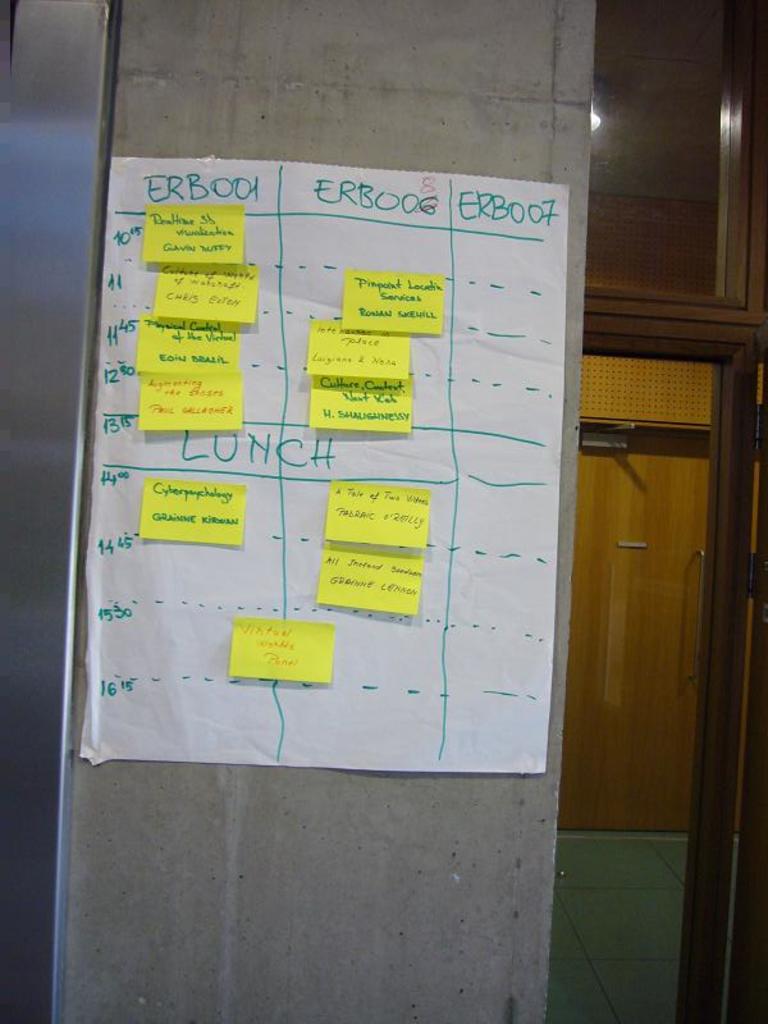 ERB001
ERB006
8
ERB007
10 15
Realtime 3D
visualization
GAVIN DUFFY
11
Culture of World
of Warcraft
CHRIS ELTON
Pinpoint Location
Services
RONAN SKEHILL
11 45
Physical Context
of the Virtual
EOIN BRAZIL
place
Luigiana & Nora
12 30
Augmenting
the senses
PAUL GALLAGHER
Culture, Context,
H. SHAUGHNESSY
13 15
LUNCH
14 00
Cyberpsychology
GRAINNE KIRWAN
A Tale of Two
PADRAIC O'REILLY
14 45
All Ireland
GRAINNE LENNON
15 30
Virtual
Worlds
Panel
16 15